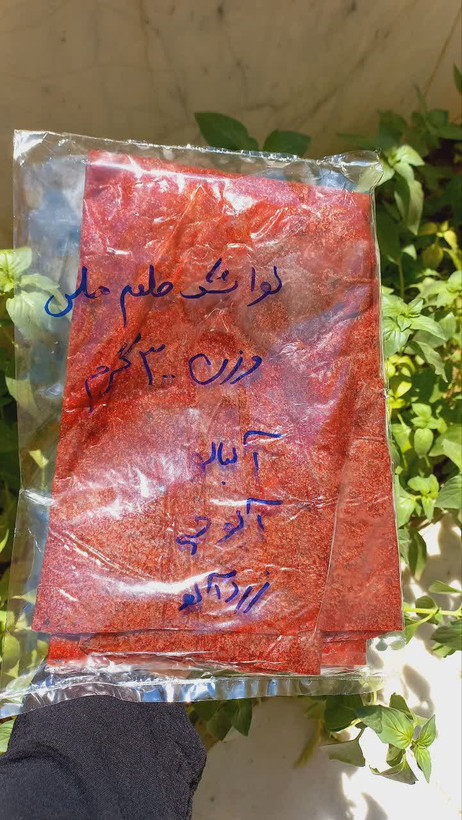 لواشک طعم ملس
وزن ۳۰۰ گرم
آلبالو
آلوچه
زردآلو